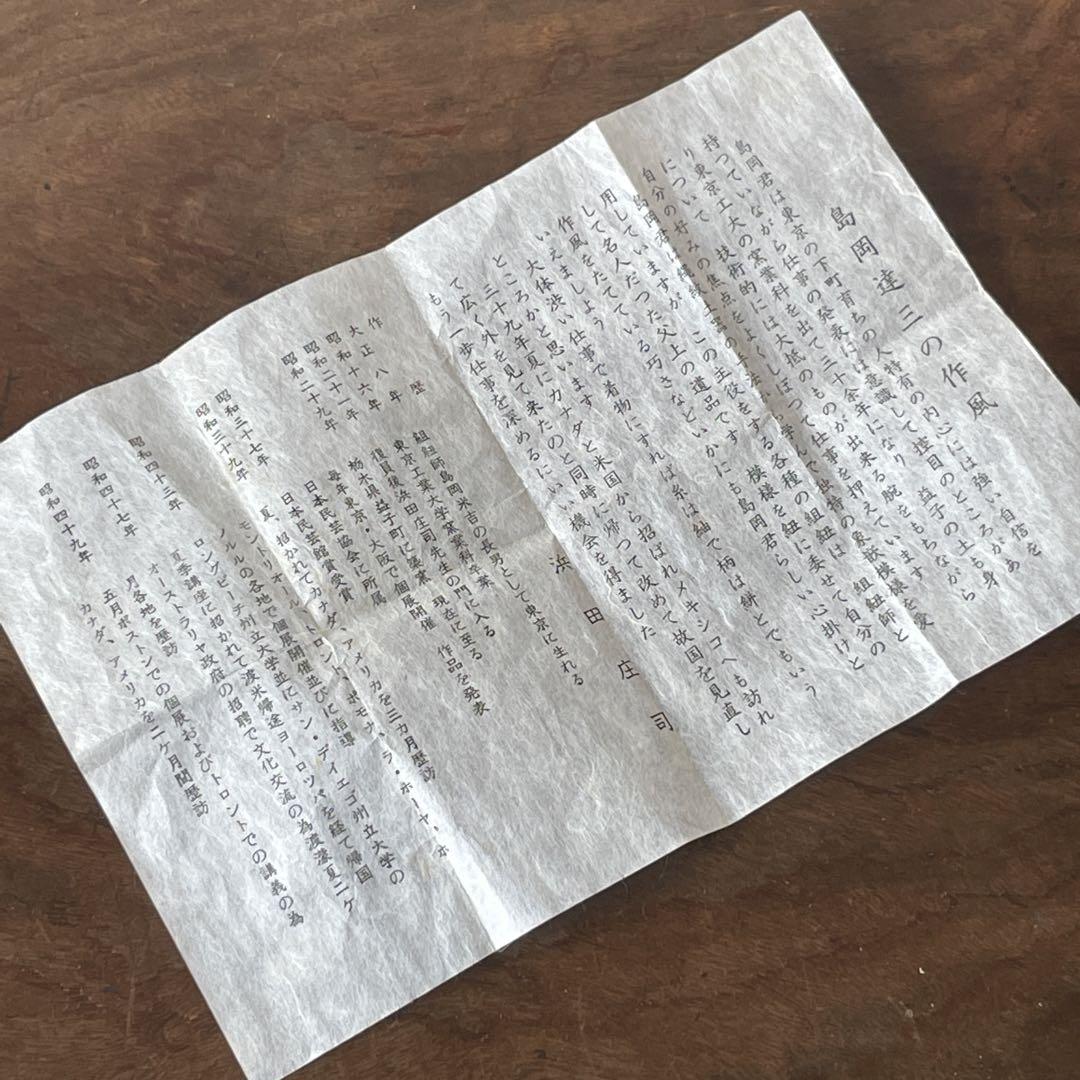 島岡達三の作風
島岡君は東京の下町育ちの人特有の内心には強い自信を
持つていながら仕事の発表には意識して控目のところがあ
り東京工大の窯業科を出て三十余年になり益子の土も身
について技術的には大抵のものが出来る腕をもちながら
自分の好みの焦点をよくしぼつて仕事を押えています
島岡君は縄文土器の手法を学んで独特の象嵌模様を愛
用していますが、この主役をする模様を組紐は、組紐師と
して名人だつた父上の遺品です各種の組紐に委せて自分の
作風をたてている巧さなどいかにも島岡君らしい心掛けと
いえましよう
大体渋い仕事で着物にすれば糸は紬で柄は絣とでもいう
ところかと思います
三十九年夏にカナダと米国から招ばれメキシコへも訪れ
て広く外を見て来たのと同時に帰つて改めて故国を見直し
もう一歩仕事を深めるにいい機会を得ました
浜田庄司
作歴
大正八年 組紐師島岡米吉の長男として東京に生れる
昭和十六年 東京工業大学窯業科卒業
昭和二十一年 復員後浜田庄司先生の門に入る
昭和二十九年 栃木県益子町に築窯 現在に至る
毎年東京・大阪で個展開催 作品を発表
日本民芸協会に所属
昭和三十七年 日本民芸館賞受賞
昭和三十九年 夏、招かれてカナダ、アメリカを三カ月歴訪
モントリオール、トロント、ポモナ、ラ・ホーヤ、ホ
ノルルの各地で個展開催並びに指導
昭和四十三年 ロングビーチ州立大学並にサン・デイエゴ州立大学の
夏季講座に招かれて渡米帰途ヨーロツパを経て帰国
昭和四十七年 オーストラリヤ政府の招聘で文化交流の為渡濠夏二ケ
月各地を歴訪
昭和四十九年 五月ボストンでの個展およびトロントでの講義の為
カナダ、アメリカを二ケ月間歴訪